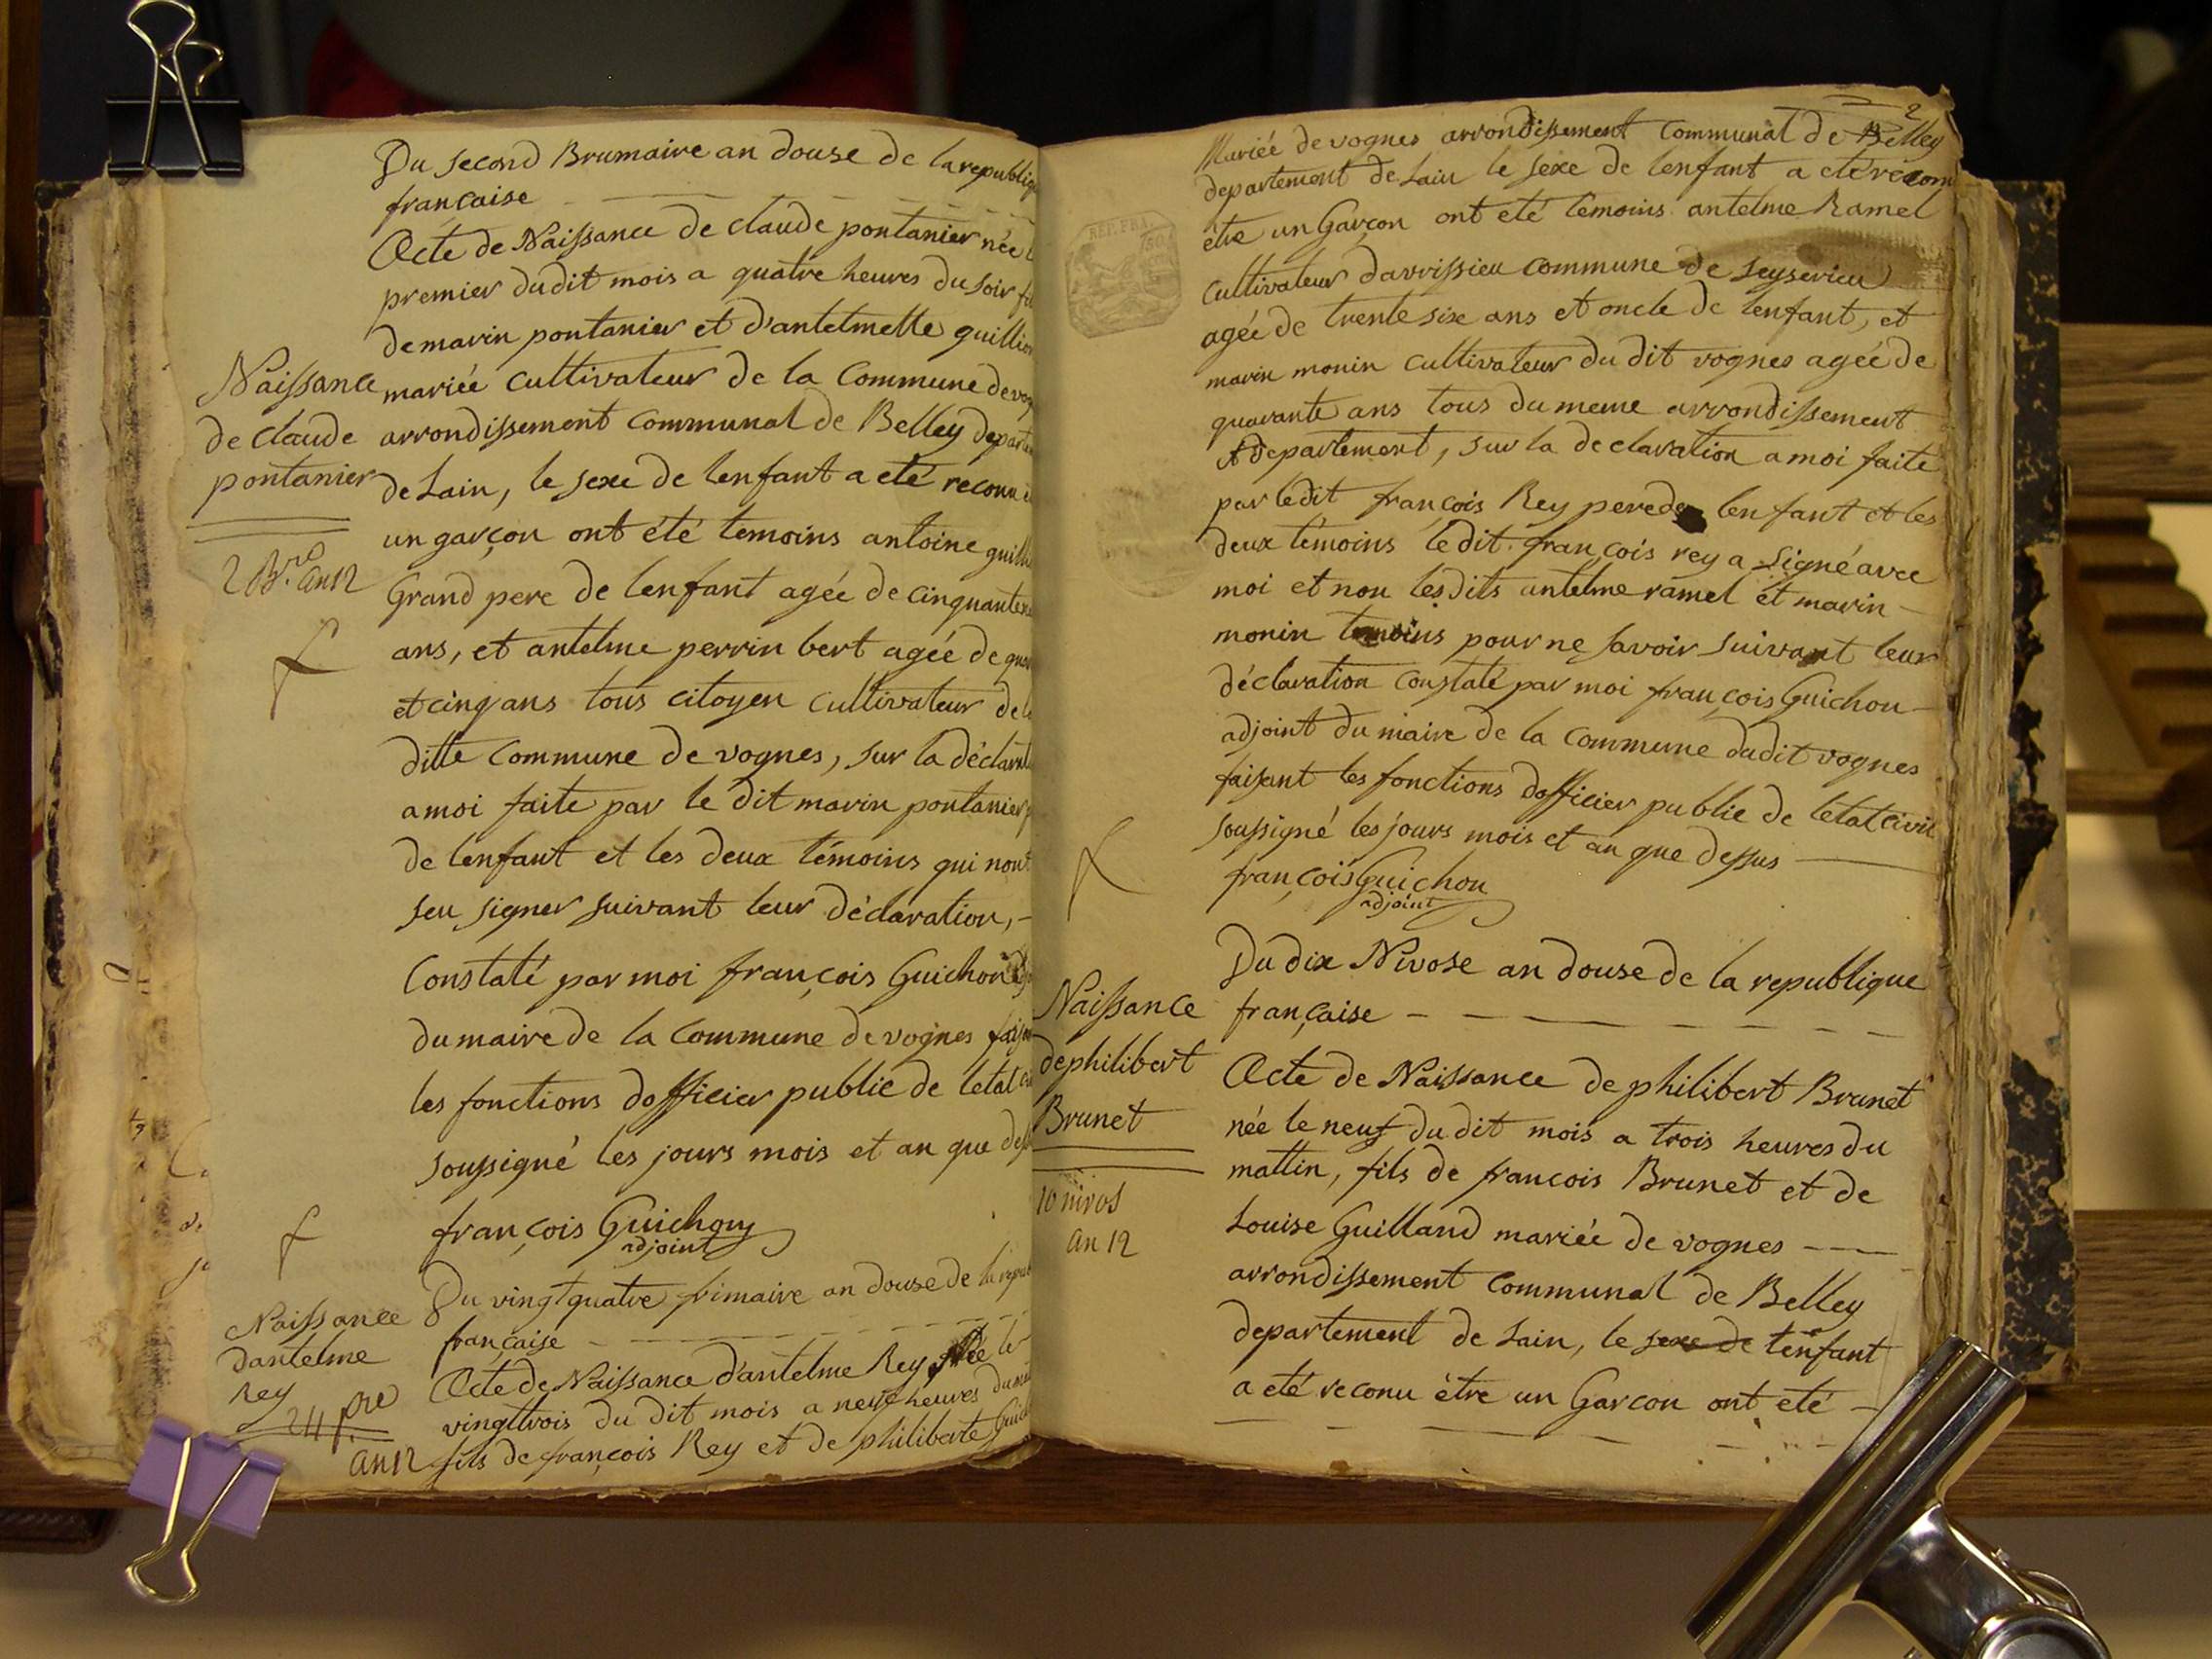 Du second Brumaire an douse de la republiq
francaise
Acte de Naissance de claude pontanier née
premier dudit mois a quatre heures du soir
de marin pontanier et d'antelmette
Naissance
mariée cultivateur de la commune
de claude
arrondissement communal de Belley
pontanier
de Lain, le sexe de lenfant a eté reconu
2 Bre an 12
un garçon ont été temoins antoine
Grand pere de lenfant agée de
ans, et antelme perrin bert agée de
et cinq ans tous citoyen cultivateur
ditte commune de vognes, sur la
a moi faite par le dit marin pontanier
de lenfant et les deux témoins qui
seu signer suivant leur déclaration,
Constaté par moi françois Guichon
du maire de la commune de vognes
les fonctions dofficier public de letat
soussigné les jours mois et an que
françois Guichon
adjoint
Du vingt quatre frimaire an douse de
Naissance
dantelme
Rey
24 fre
an 12
française
Acte de Naissance d'antelme Rey née le
vingt trois du dit mois a neuf heures
fils de françois Rey et de philiberte
2
Mariée de vognes arrondissement communal de Belley
departement de Lain le sexe de lenfant a eté
etre un Garçon ont eté temoins antelme Ramel
REP. FRA.
cultivateur commune de seyserieu
agée de trente sixe ans et oncle de lenfant, et
marin monin cultivateur du dit vognes agée de
quarante ans tous du meme arrondissement
et departement, sur la declaration a moi faite
par ledit françois Rey pere de lenfant et les
deux témoins le dit françois rey a signé avec
moi et non lesdits antelme ramel et marin
monin temoins pour ne savoir suivant leur
déclaration constaté par moi françois Guichon
adjoint du maire de la commune dudit vognes
faisant les fonctions dofficier public de letat civil
soussigné les jours mois et an que dessus
françois Guichon
adjoint
Du dix Nivose an douse de la republique
française
Naissance
de philibert
Brunet
10 nivos
an 12
Acte de Naissance de philibert Brunet
née le neuf du dit mois a trois heures du
mattin, fils de francois Brunet et de
Louise Guilland mariée de vognes
arrondissement communal de Belley
departement de Lain, le sexe de lenfant
a eté reconu être un Garcon ont eté